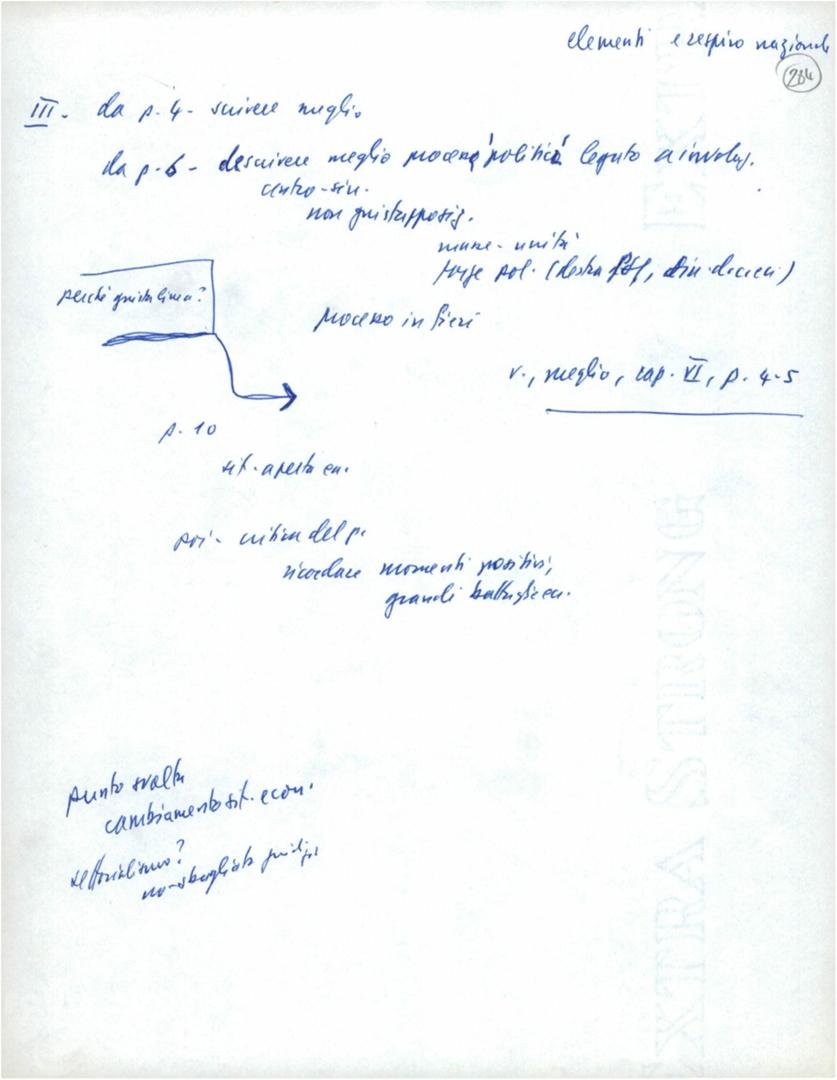 elementi e respiro nazionale
284
III. da p. 4 - scrivere meglio
da p. 6 - descrivere meglio processi politici legato a involuz.
centro-sin.
non giustapposiz.
manc. unità
forze pol. (destra
perché questa linea?
processo in fieri
v., meglio, cap. VI, p. 4-5
p. 10
sit. aperta ecc.
poi - critica del p.
ricordare momenti positivi,
grandi battaglie ecc.
punto svolta
cambiamento sit. econ.
settorialismo?
no - sbagliato
EXTRA STRONG